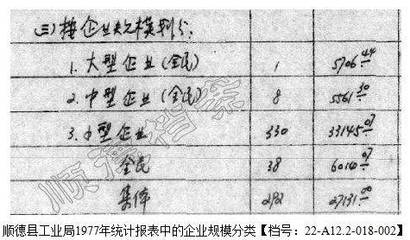 (三)按企业规模划分:
1.大型企业(全民) 1 5706.44
2.中型企业(全民) 8 5561.30
3.小型企业 330 33145.07
全民 38 6014.07
集体 292 27131.00
顺德档案
顺德县工业局1977年统计报表中的企业规模分类【档号:22-A12.2-018-002】